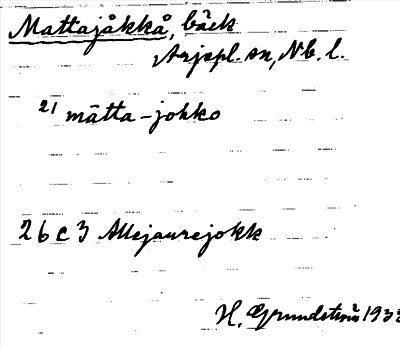 Mattajåkkå, bäck
Arjepl. sn, Nb. l.
21 mätta-jokko
26 c 3 Allejaurejokk
H. Grundström 193